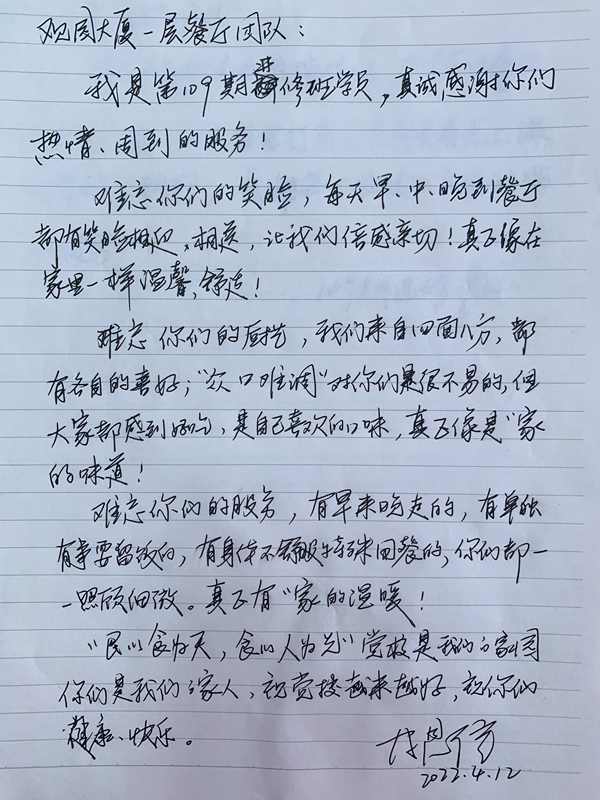 观园大厦一层餐厅团队：
我是第109期进修班学员，真诚感谢你们
热情、周到的服务！
难忘你们的笑脸，每天早、中、晚到餐厅
都有笑脸相迎、相送，让我们倍感亲切！真正像在
家里一样温馨，舒适！
难忘你们的厨艺，我们来自四面八方，都
有各自的喜好；“众口难调”对你们是很不易的，但
大家都感到好吃，是自己喜欢的口味，真正像是“家
的味道！
难忘你们的服务，有早来晚走的，有单独
有事要留饭的，有身体不舒服特殊四餐的，你们都一
一照顾细微。真正有“家的温暖！
“民以食为天，食以人为先”党校是我们的家园
你们是我们的家人，祝党校越来越好，祝你们
健康、快乐。
2022.4.12